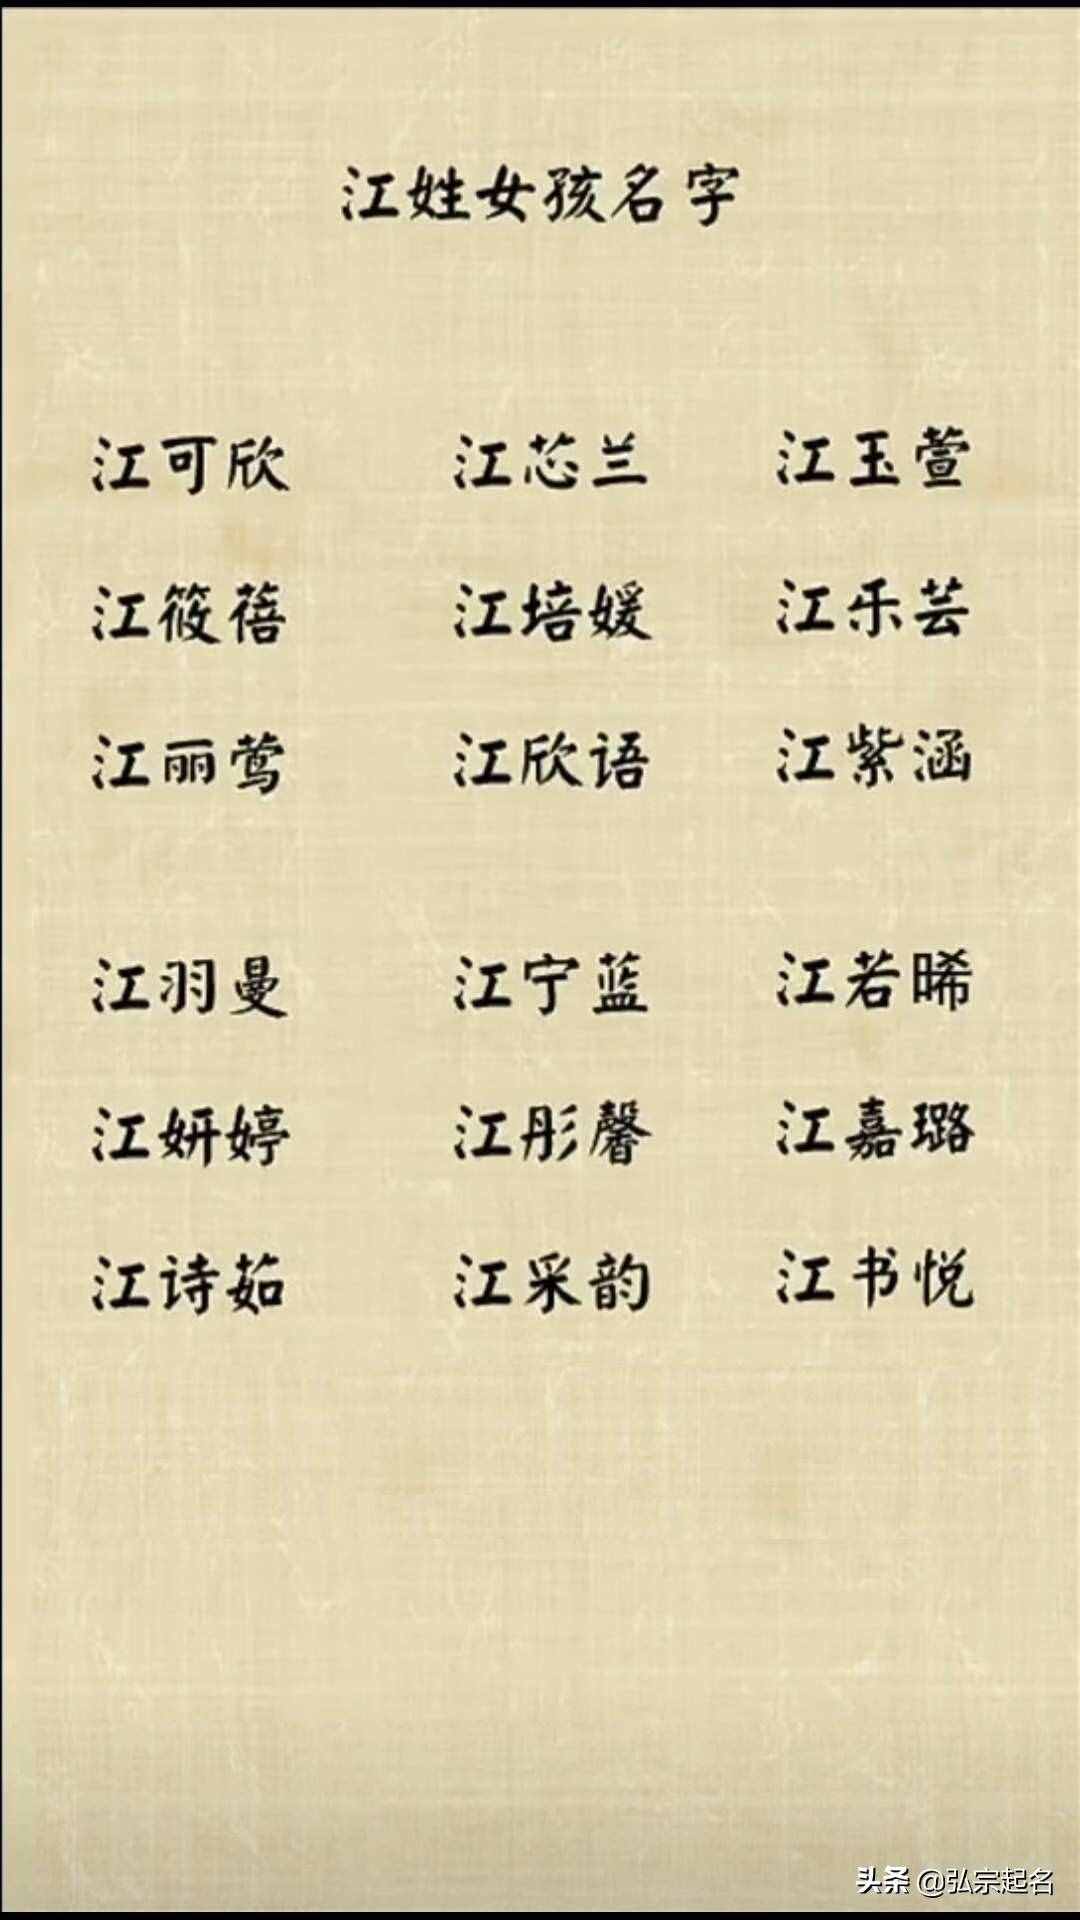 江姓女孩名字
江可欣 江芯兰 江玉萱
江筱蓓 江培媛 江乐芸
江丽莺 江欣语 江紫涵
江羽曼 江宁蓝 江若晞
江妍婷 江彤馨 江嘉璐
江诗茹 江采韵 江书悦
头条 @弘宗起名